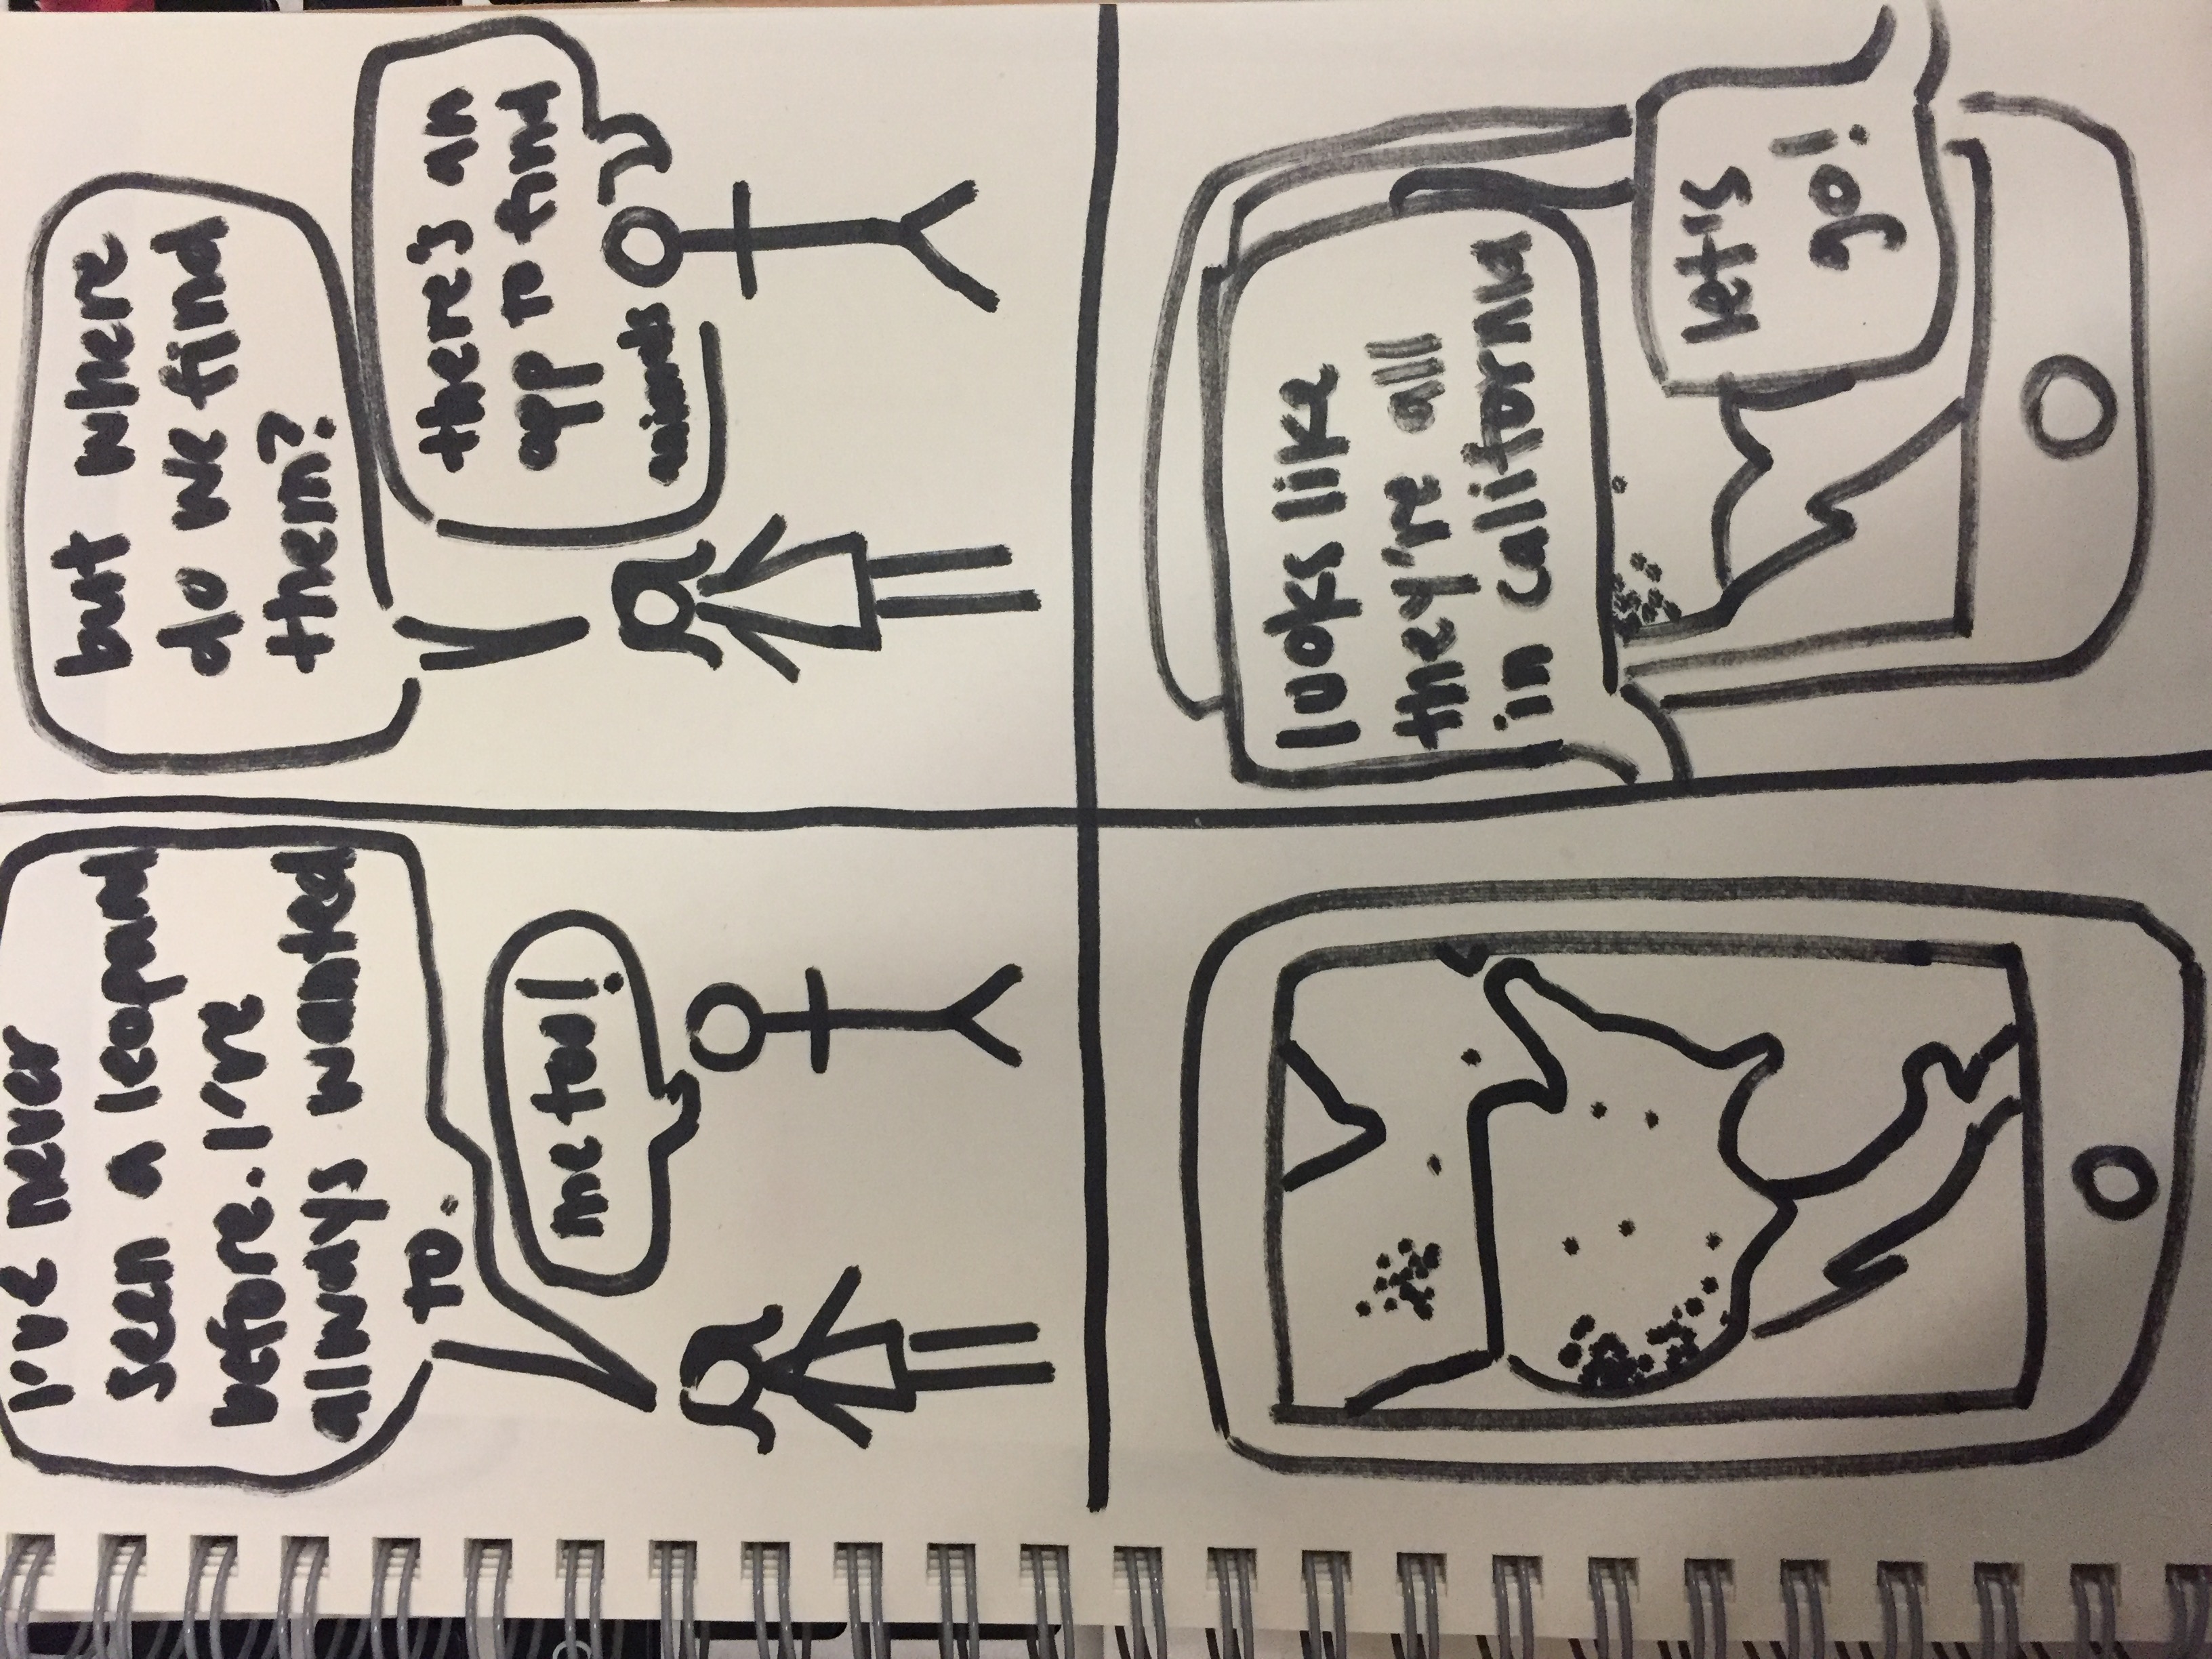 I've never
seen a leopard
before. I've
always wanted
to.
me too!
but where
do we find
them?
there's an
app to find
animals
looks like
they're all
in california
let's
go!